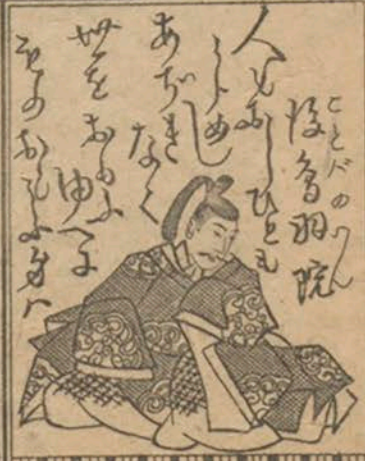 ごとバのゐん
後鳥羽院
人もおしひとも
うらめし
あぢきなく
世をおもふ
ゆへに
ものおもふ身ハ